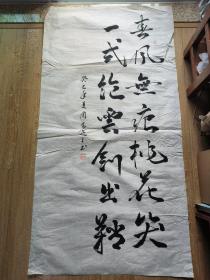 春風無痕桃花笑
一式绝雲劍出鞘